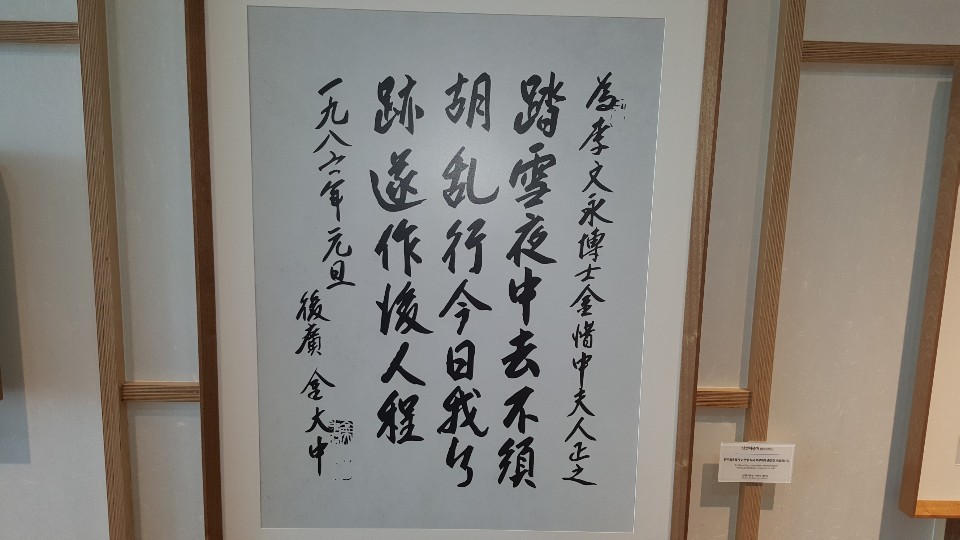 為李文永博士金惜中夫人正之
踏雪夜中去不須
胡乱行今日我行
跡遂作後人程
一九八六年元旦
後廣 金大中